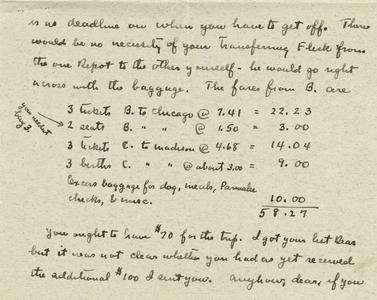 is no deadline on when you have to get off. There
would be no necessity of your transferring Fleck from
the one Depot to the other yourself - he would go right
across with the baggage. The fares from B. are
3 tickets B. to Chicago @ 7.41 = 22.23
you needn't buy 3
2 seats B. " " @ 1.50 = 3.00
3 tickets C. to Madison @ 4.68 = 14.04
3 berths C. " " @ about 3.00 = 9.00
Excess baggage for dog, meals, Parmalee
checks, & misc. 10.00
58.27
You ought to have $70 for the trip. I got your let Dear
but it was not clear whether you had as yet received
the additional $100 I sent you. Anyhow, dear, if you